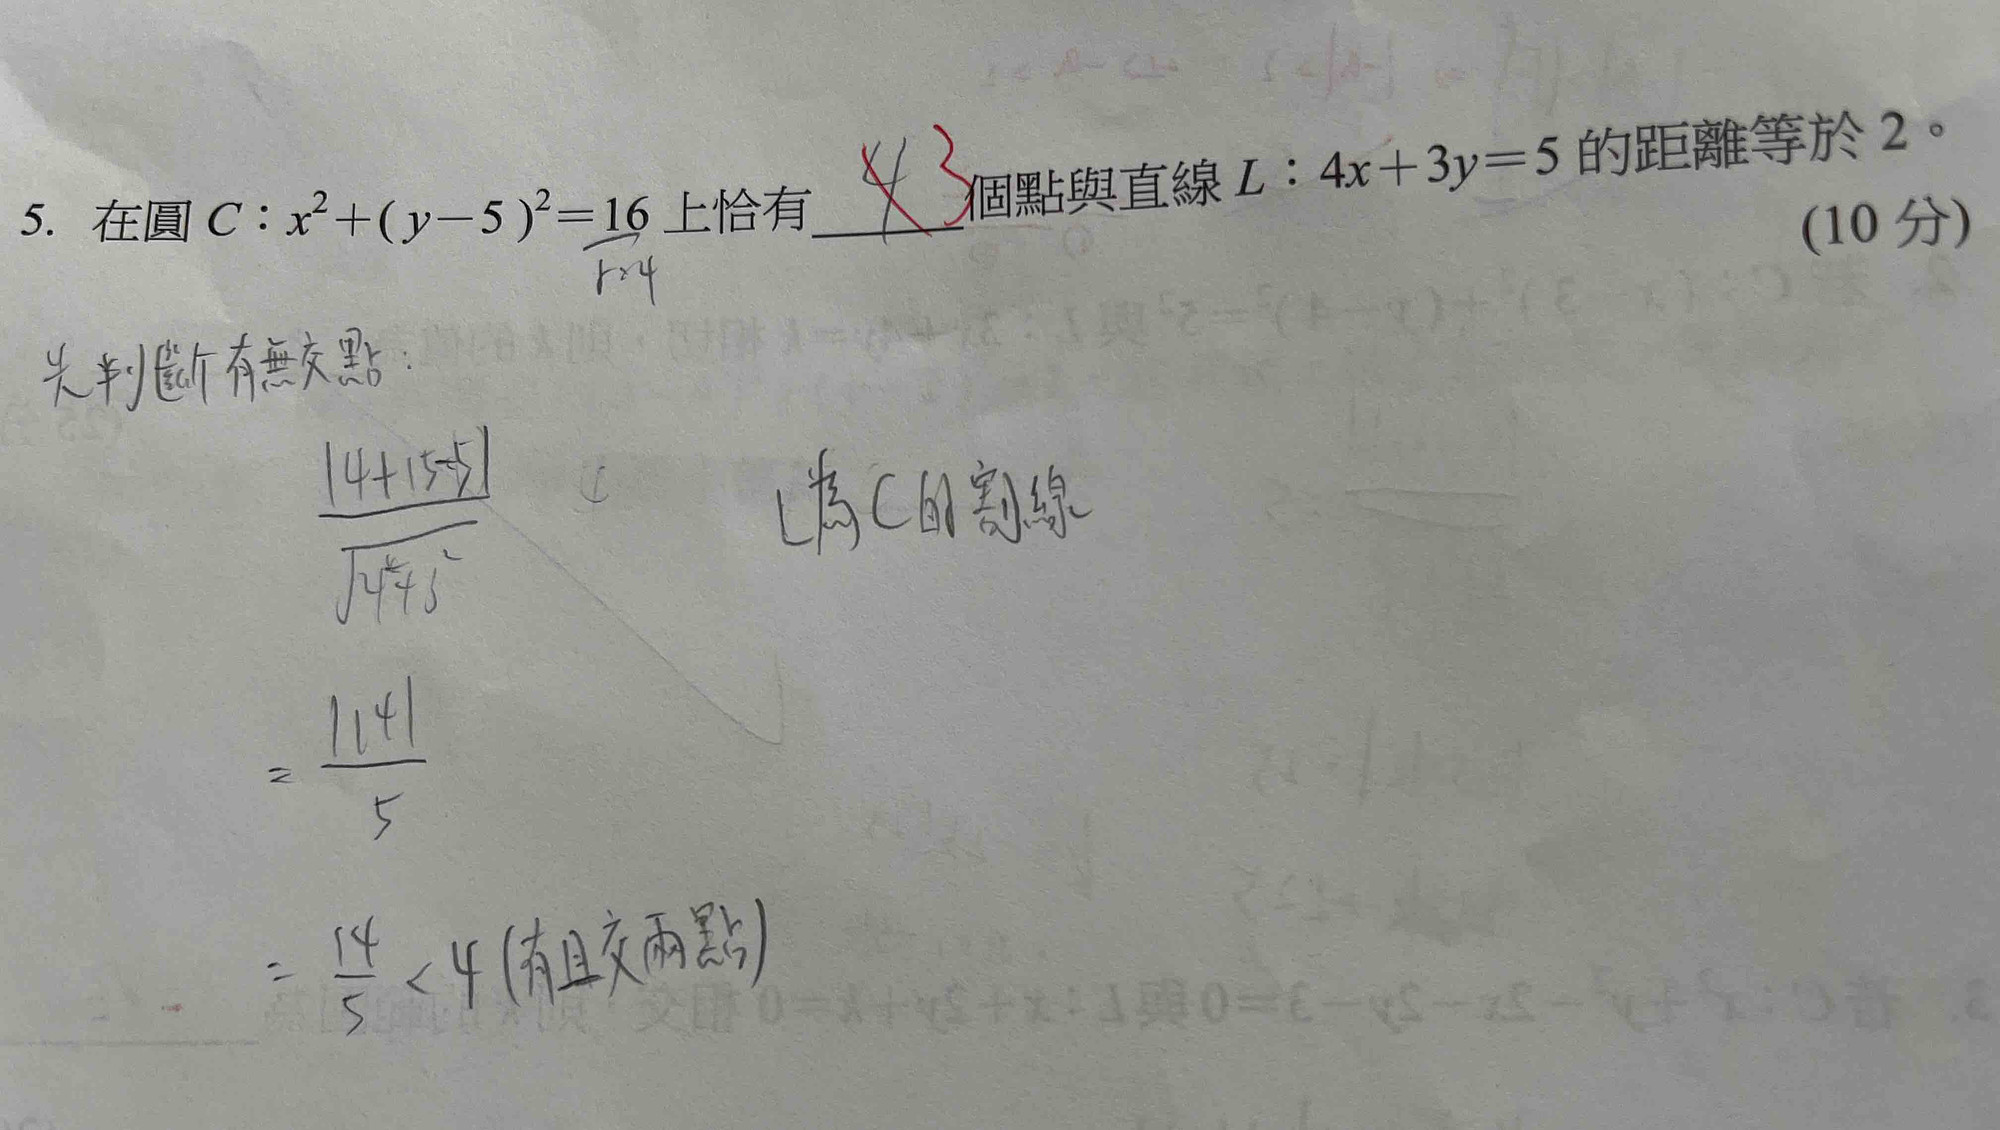 5. 在圓 C：x²+(y−5)²=16 上恰有 4 3 個點與直線 L：4x+3y=5 的距離等於 2。
(10 分)
r=4
先判斷有無交點：
|4+15-5|
√4²+3²
L為C的割線
= |14|
5
= 14/5 < 4 (有且交兩點)